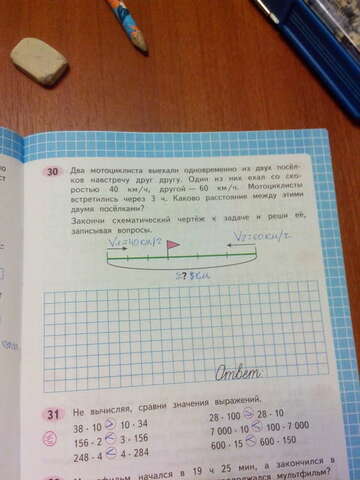 30 Два мотоциклиста выехали одновременно из двух посёл-
ков навстречу друг другу. Один из них ехал со ско-
ростью 40 км/ч, другой — 60 км/ч. Мотоциклисты
встретились через 3 ч. Каково расстояние между этими
двумя посёлками?
Закончи схематический чертёж к задаче и реши её,
записывая вопросы.
V1=40км/ч V2=60км/ч
? км
Ответ
31 Не вычисляя, сравни значения выражений.
38 · 10 > 10 · 34 28 · 100 > 28 · 10
156 · 2 < 3 · 156 7 000 · 10 < 100 · 7 000
248 · 4 < 4 · 284 600 · 15 < 600 · 150
фильм начался в 19 ч 25 мин, а закончился в
должался мультфильм?